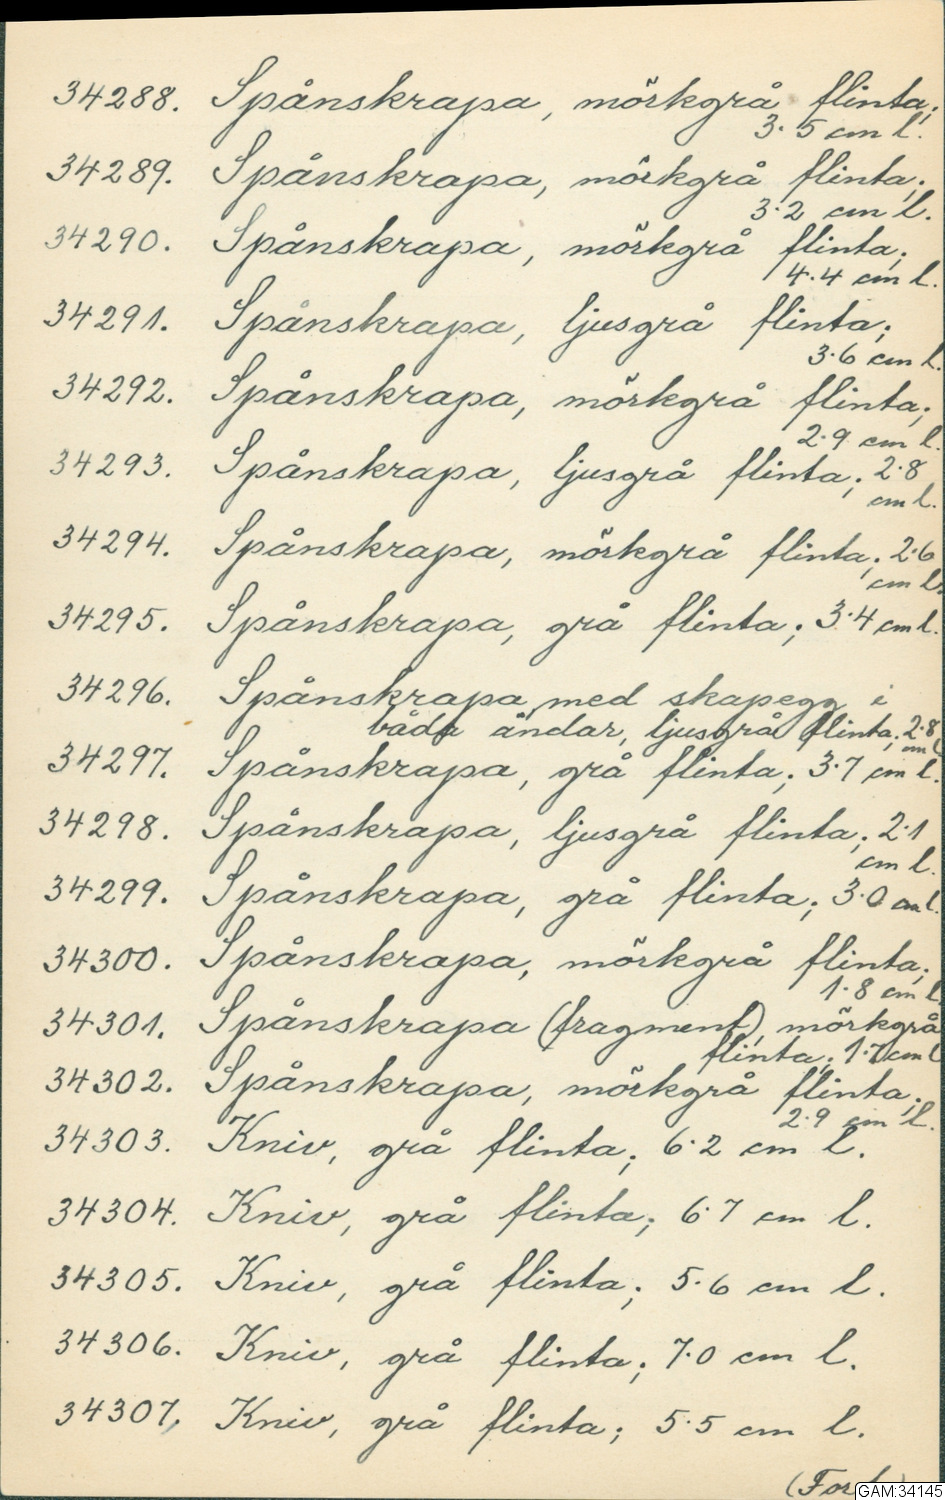 34288. Spånskrapa, mörkgrå flinta;
3.5 cm l.
34289. Spånskrapa, mörkgrå flinta;
3.2 cm l.
34290. Spånskrapa, mörkgrå flinta;
4.4 cm l.
34291. Spånskrapa, ljusgrå flinta;
3.6 cm l.
34292. Spånskrapa, mörkgrå flinta;
2.9 cm l.
34293. Spånskrapa, ljusgrå flinta; 2.8
cm l.
34294. Spånskrapa, mörkgrå flinta; 2.6
cm l.
34295. Spånskrapa, grå flinta; 3.4 cm l.
34296. Spånskrapa med skapegg i
båda ändar, ljusgrå flinta; 2.8
cm l
34297. Spånskrapa, grå flinta; 3.7 cm l.
34298. Spånskrapa, ljusgrå flinta; 2.1
cm l.
34299. Spånskrapa, grå flinta; 3.0 cm l.
34300. Spånskrapa, mörkgrå flinta;
1.8 cm l
34301. Spånskrapa (fragment), mörkgrå
flinta; 1.7 cm l
34302. Spånskrapa, mörkgrå flinta;
2.9 cm l.
34303. Kniv, grå flinta; 6.2 cm l.
34304. Kniv, grå flinta; 6.7 cm l.
34305. Kniv, grå flinta; 5.6 cm l.
34306. Kniv, grå flinta; 7.0 cm l.
34307. Kniv, grå flinta; 5.5 cm l.
GAM:34145